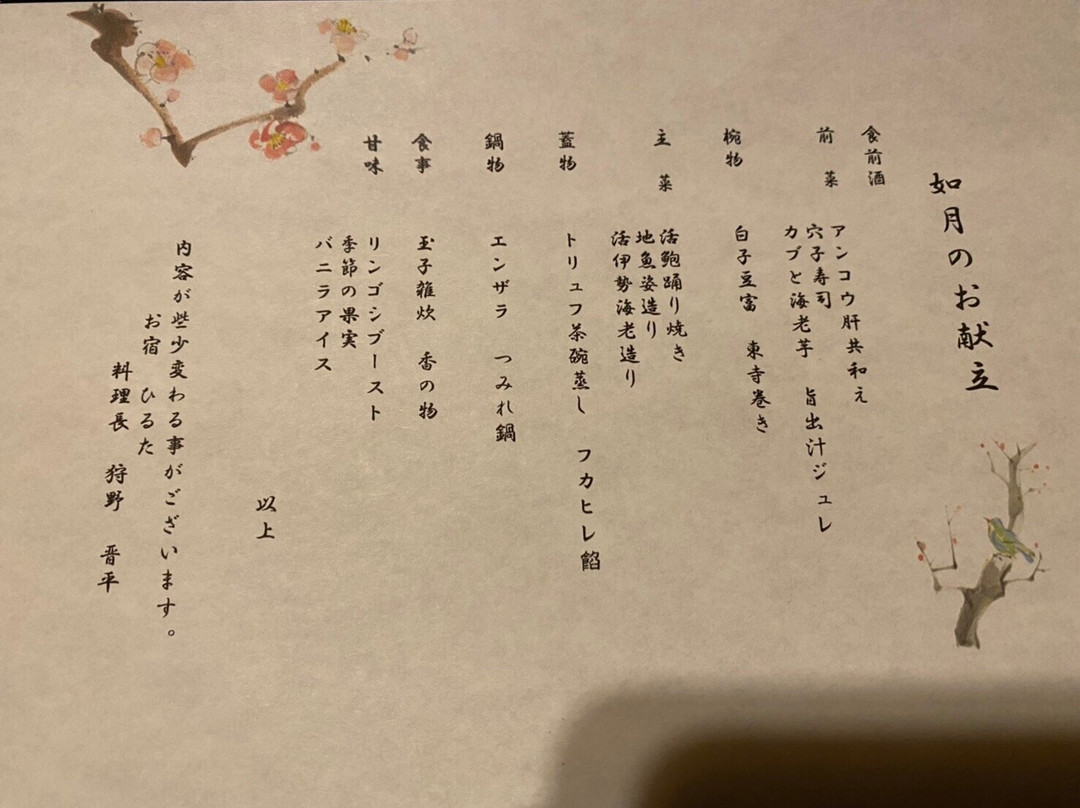 如月のお献立
食前酒
前菜 アンコウ肝共和え
穴子寿司
カブと海老芋 旨出汁ジュレ
椀物 白子豆富 東寺巻き
主菜 活鮑踊り焼き
地魚姿造り
活伊勢海老造り
蓋物 トリュフ茶碗蒸し フカヒレ餡
鍋物 エンザラ つみれ鍋
食事 玉子雑炊 香の物
甘味 リンゴシブースト
季節の果実
バニラアイス
以上
内容が些少変わる事がございます。
お宿 ひるた
料理長 狩野 晋平